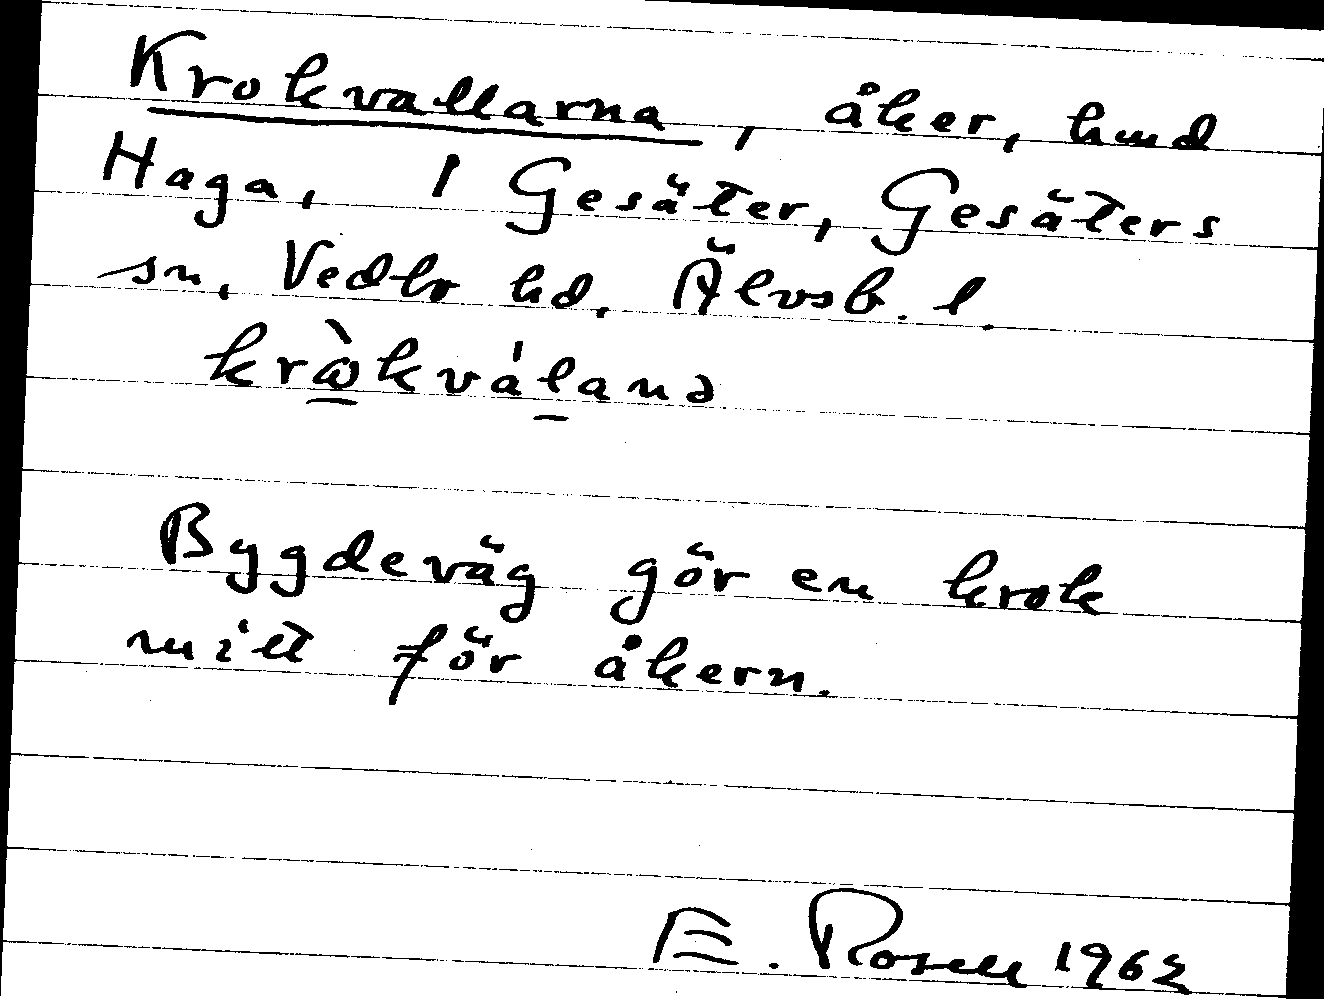 Krokvallarna, åker, hmd
Haga, 1 Gesäter, Gesäters
sn, Vedbo hd, Älvsb. l.
kròkváland
Bygdeväg gör en krok
mitt för åkern.
E. Rosell 1962